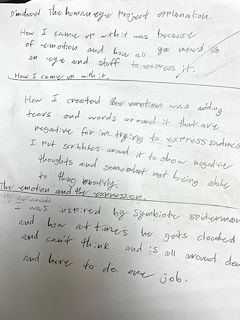 the human eye project explanation.
How I came up with it was because
of emotion and how all you need is
an eye and stuff to express it.
How I came up with it.
How I created the emotion was adding
tears and words around it that are
negative for im trying to express sadness
I put scribbles around it to show negative
thoughts and somewhat not being able
to thing
The emotion and the expression.
I was inspired by Symbiote spiderman
and how at times he gets clouded
and can't think and is all around down
and here to do one job.